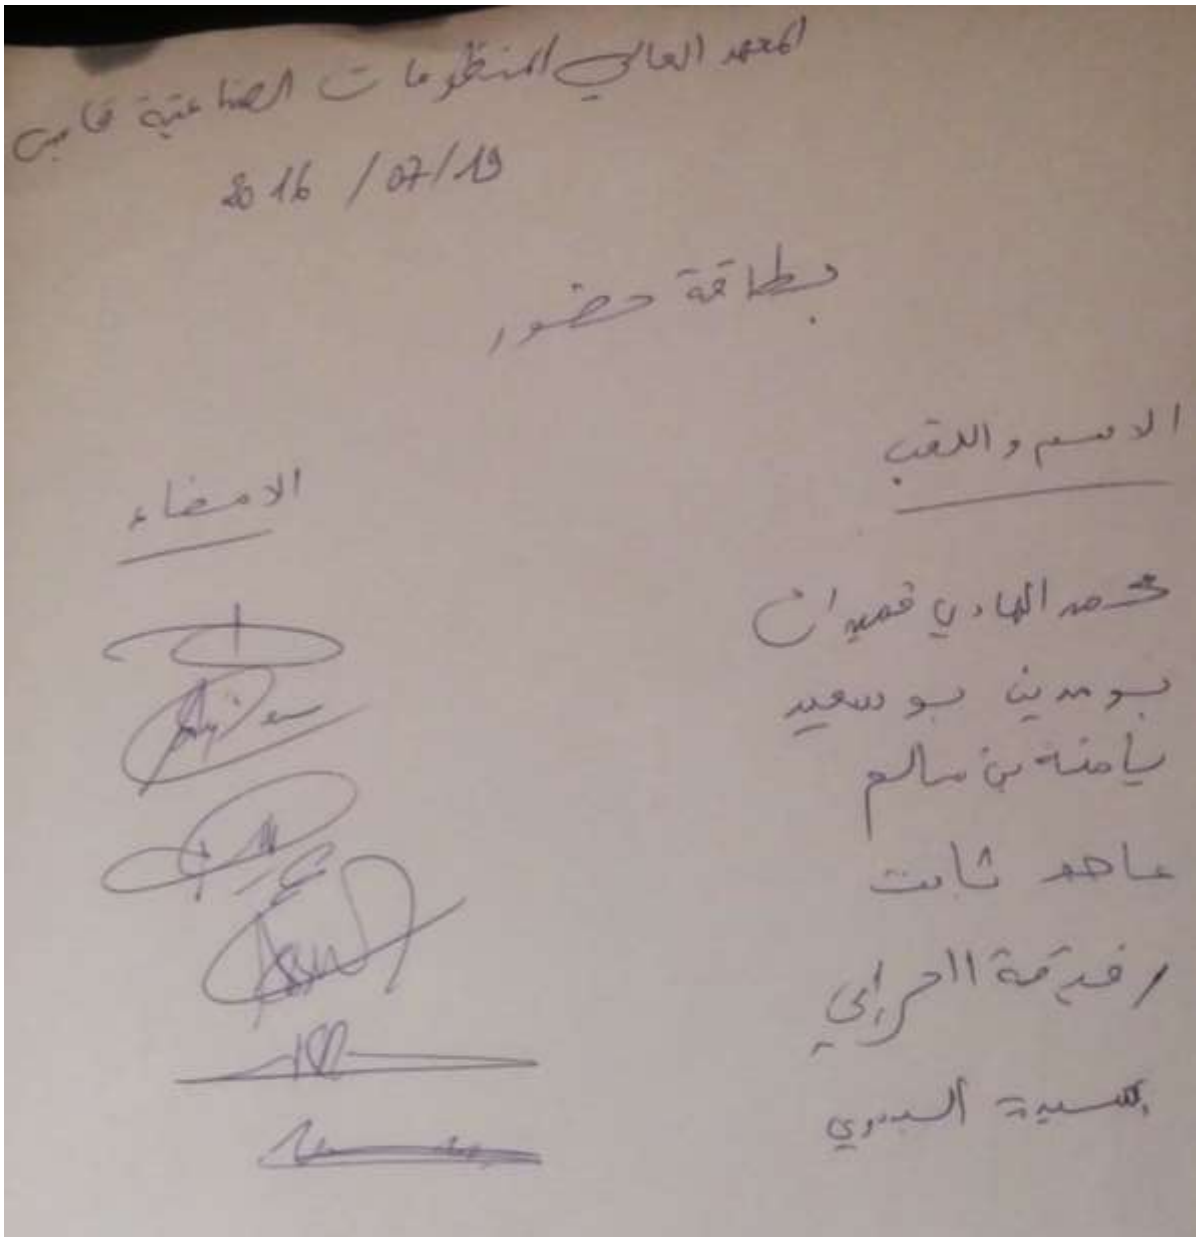 المعهد العالي للمنظومات الصناعية قابس
2016 /07/19
بطاقة حضور
الاسم واللقب
الامضاء
محمد الهادي قميدان
بومدين بوسعيد
يامنة بن سالم
ماجد ثابت
رفيقة الحرابي
السيدة البدوي